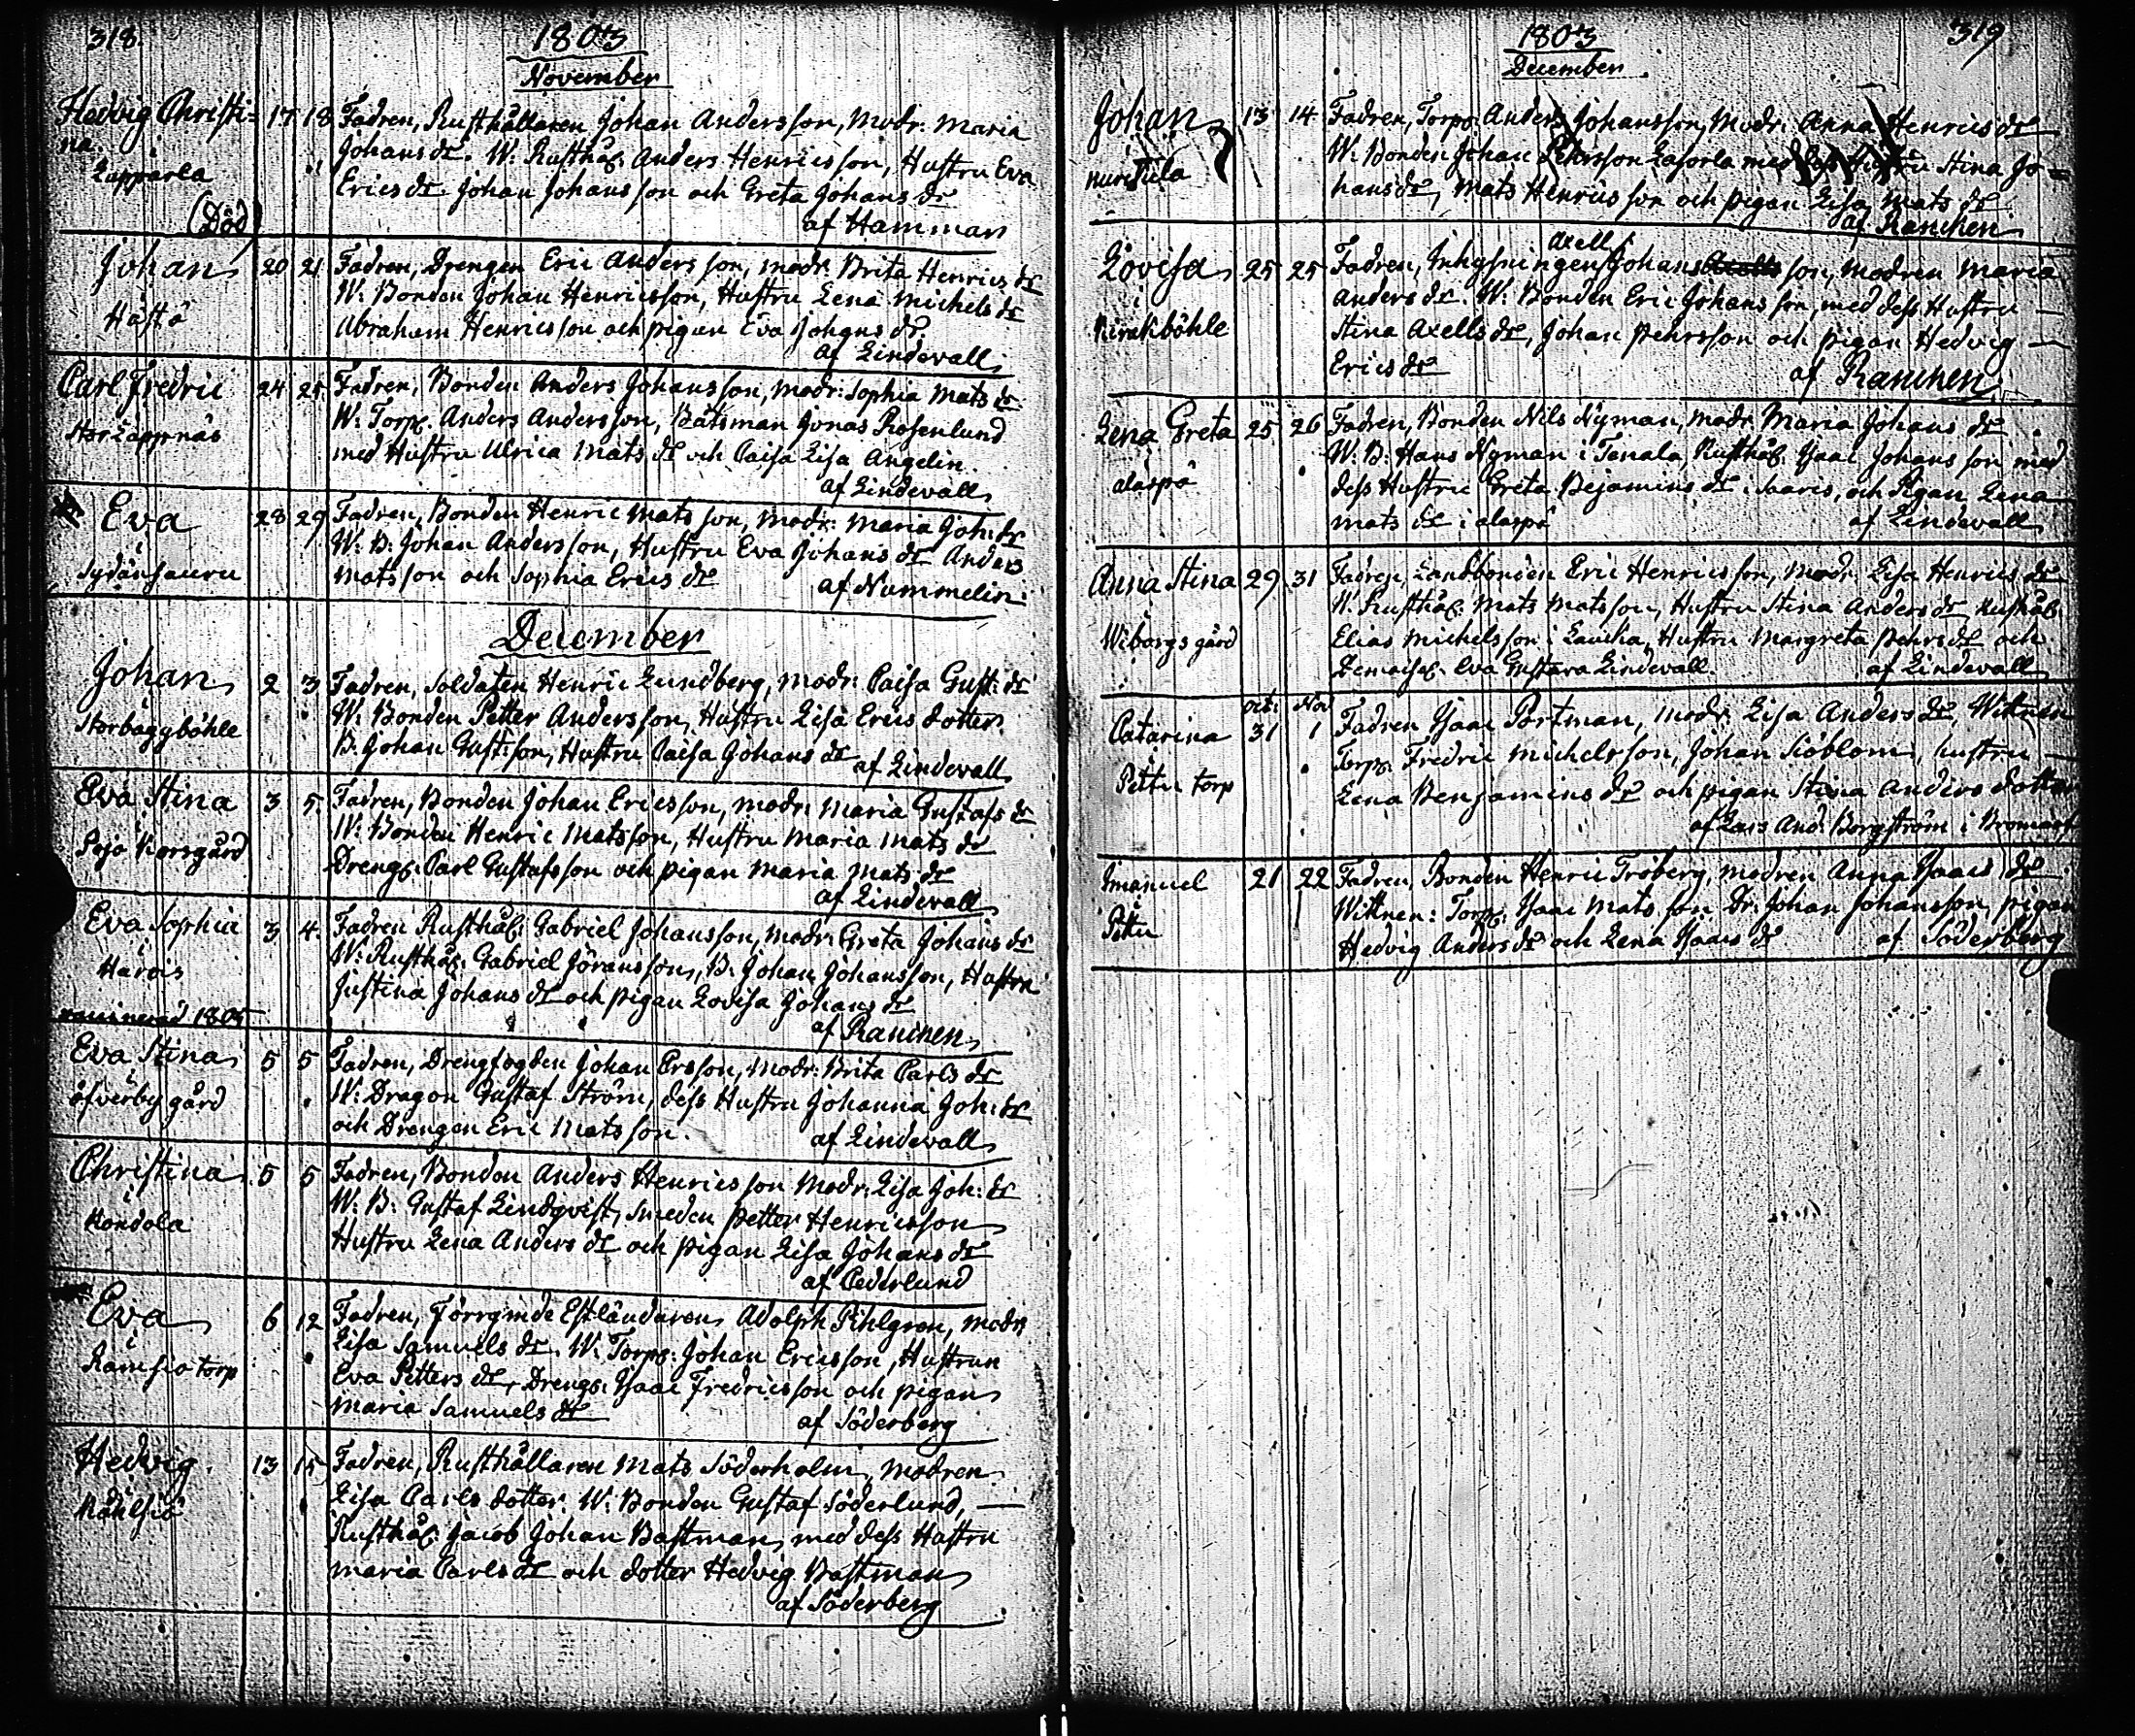 318.
1803
November
Hedvig Christi= 17 18 Fadren, Rusthållaren Johan Andersson, Modr: Maria
na. Johans dr. W: Rusthål. Anders Henricsson, Hustru Eva
i Lapparla Erics dr Johan Johansson och Greta Johans dr
(Död) af Hamman
Johan 20 21 Fadren, Drengen Eric Andersson, modr. Brita Henrics dr
W: Bonden Johan Henricsson, Hustru Lena Michels dr
Hästö Abraham Henricsson och pigan Eva Johans dr
af Lindevall
Carl Fredric 24 25 Fadren, Bonden Anders Johansson, modr: Sophia Mats dr
W: Torp. Anders Andersson, Båtsman Jonas Rosenlund
Stor Lappnäs med Hustru Ulrica Mats dr och Caisa Lisa Angelin.
af Lindevall
Eva 28 29 Fadren, Bonden Henric Matsson, modr: Maria Joh: dr
i W: B: Johan Andersson, Hustru Eva Johans dr Anders
Sydänsauru Matsson och Sophia Erics dr af Nummelin
December
Johan 2 3 Fadren, Soldaten Henric Lundberg, modr: Caisa Gust: dr
W: Bonden Petter Andersson, Hustru Lisa Erics dotter.
Storbaggböhle B. Johan Gust:son, Hustru Caisa Johans dr af Lindevall
Eva Stina 3 5. Fadren, Bonden Johan Ericsson, modr: Maria Gustafs dr
i W: Bonden Henric Matsson, Hustru Maria Mats dr
Pojo Korsgård Dreng. Carl Gustafsson och pigan Maria Mats dr
af Lindevall
Eva Sophia 3 4. Fadren Rusthål: Gabriel Johansson, Modr: Greta Johans dr
i W: Rusthål. Gabriel Göransson, B: Johan Johansson, Hustru
Harois Justina Johans dr och pigan Lovisa Johans dr
vaccinerad 1805 af Raninen
Eva Stina 5 5 Fadren, Drengfogden Johan Ersson, Modr: Brita Carls dr
i W: Dragon Gustaf Ström, dess Hustru Johanna Joh: dr
öfverby gård och Drengen Eric Matsson. af Lindevall
Christina 5 5 Fadren, Bonden Anders Henricsson Modr: Lisa Joh: dr
i W: B: Gustaf Lindqvist, Smeden Petter Henricsson
Kondola Hustru Lena Anders dr och pigan Lisa Johans dr
af Cederlund
Eva 6 12 Fadren, Förrymde Estländaren Adolph Pihlgren, modr
i Lisa Samuels dr. W: Torp: Johan Ericsson, Hustrun
Ramsio torp Eva Petters dr, Dreng: Isaac Fredricsson och pigan
Maria Samuels dr af Söderberg
Hedvig. 13 15 Fadren, Rusthållaren Mats Söderholm, modren
i Lisa Carls dotter. W: Bonden Gustaf Söderlund, —
Rusthål. Jacob Johan Bastman, med dess Hustru
Maria Carls dr och dotter Hedvig Bastman
af Söderberg
319
1803
December
Johan 13 14 Fadren, Torp: Anders Johansson, Modr: Anna Henrics dr
i W: Bonden Johan Pehrsson Lasorla med dess Hustru Stina Jo=
nuritula hans dr, Mats Henricsson och pigan Lisa Mats dr
af Raninen
Axells
Lovisa 25 25 Fadren, Inhysningen Johans son, Modren Maria
i Anders dr. W: Bonden Eric Johansson, med dess Hustru —
Kirakböhle Stina Axells dr, Johan Pehrsson och pigan Hedvig —
Erics dr af Raninen
Lena Greta 25 26 Fadren, Bonden Nils Nyman, modr. Maria Johans dr
i W: B: Hans Nyman i Tenala, Rusthål. Isaac Johansson med
alaspå dess Hustru Greta Bejamins dr i Saaris, och Pigan Lena
Mats dr i alaspå af Lindevall
Anna Stina 29 31 Fadren, Landbonden Eric Henricsson, modr. Lisa Henrics dr
i W: Rusthål: Mats Matsson, Hustru Stina Anders dr, Rusthål.
Wiborgs gård Elias Michelsson i Laucka, Hustru Margreta Pehrs dr och
Demoisel. Eva Gustava Lindevall. af Lindevall
Oct: Nov
Catarina 31 1 Fadren Isaac Portman, Modr: Lisa Anders dr, Wittnen
i Torp: Fredric Michelsson, Johan Siöblom, hustru —
Pettu torp Lena Benjamins dr och pigan Stina Anders dotter
af Lars And: Borgström i Bromarf
Imanuel 21 22 Fadren, Bonden Henric Fröberg, modren Anna Isaacs dr
i Wittnen: Torp. Isaac Matsson Dr: Johan Johansson, pigan
Pettu Hedvig Anders dr och Lena Isaacs dr af Söderberg